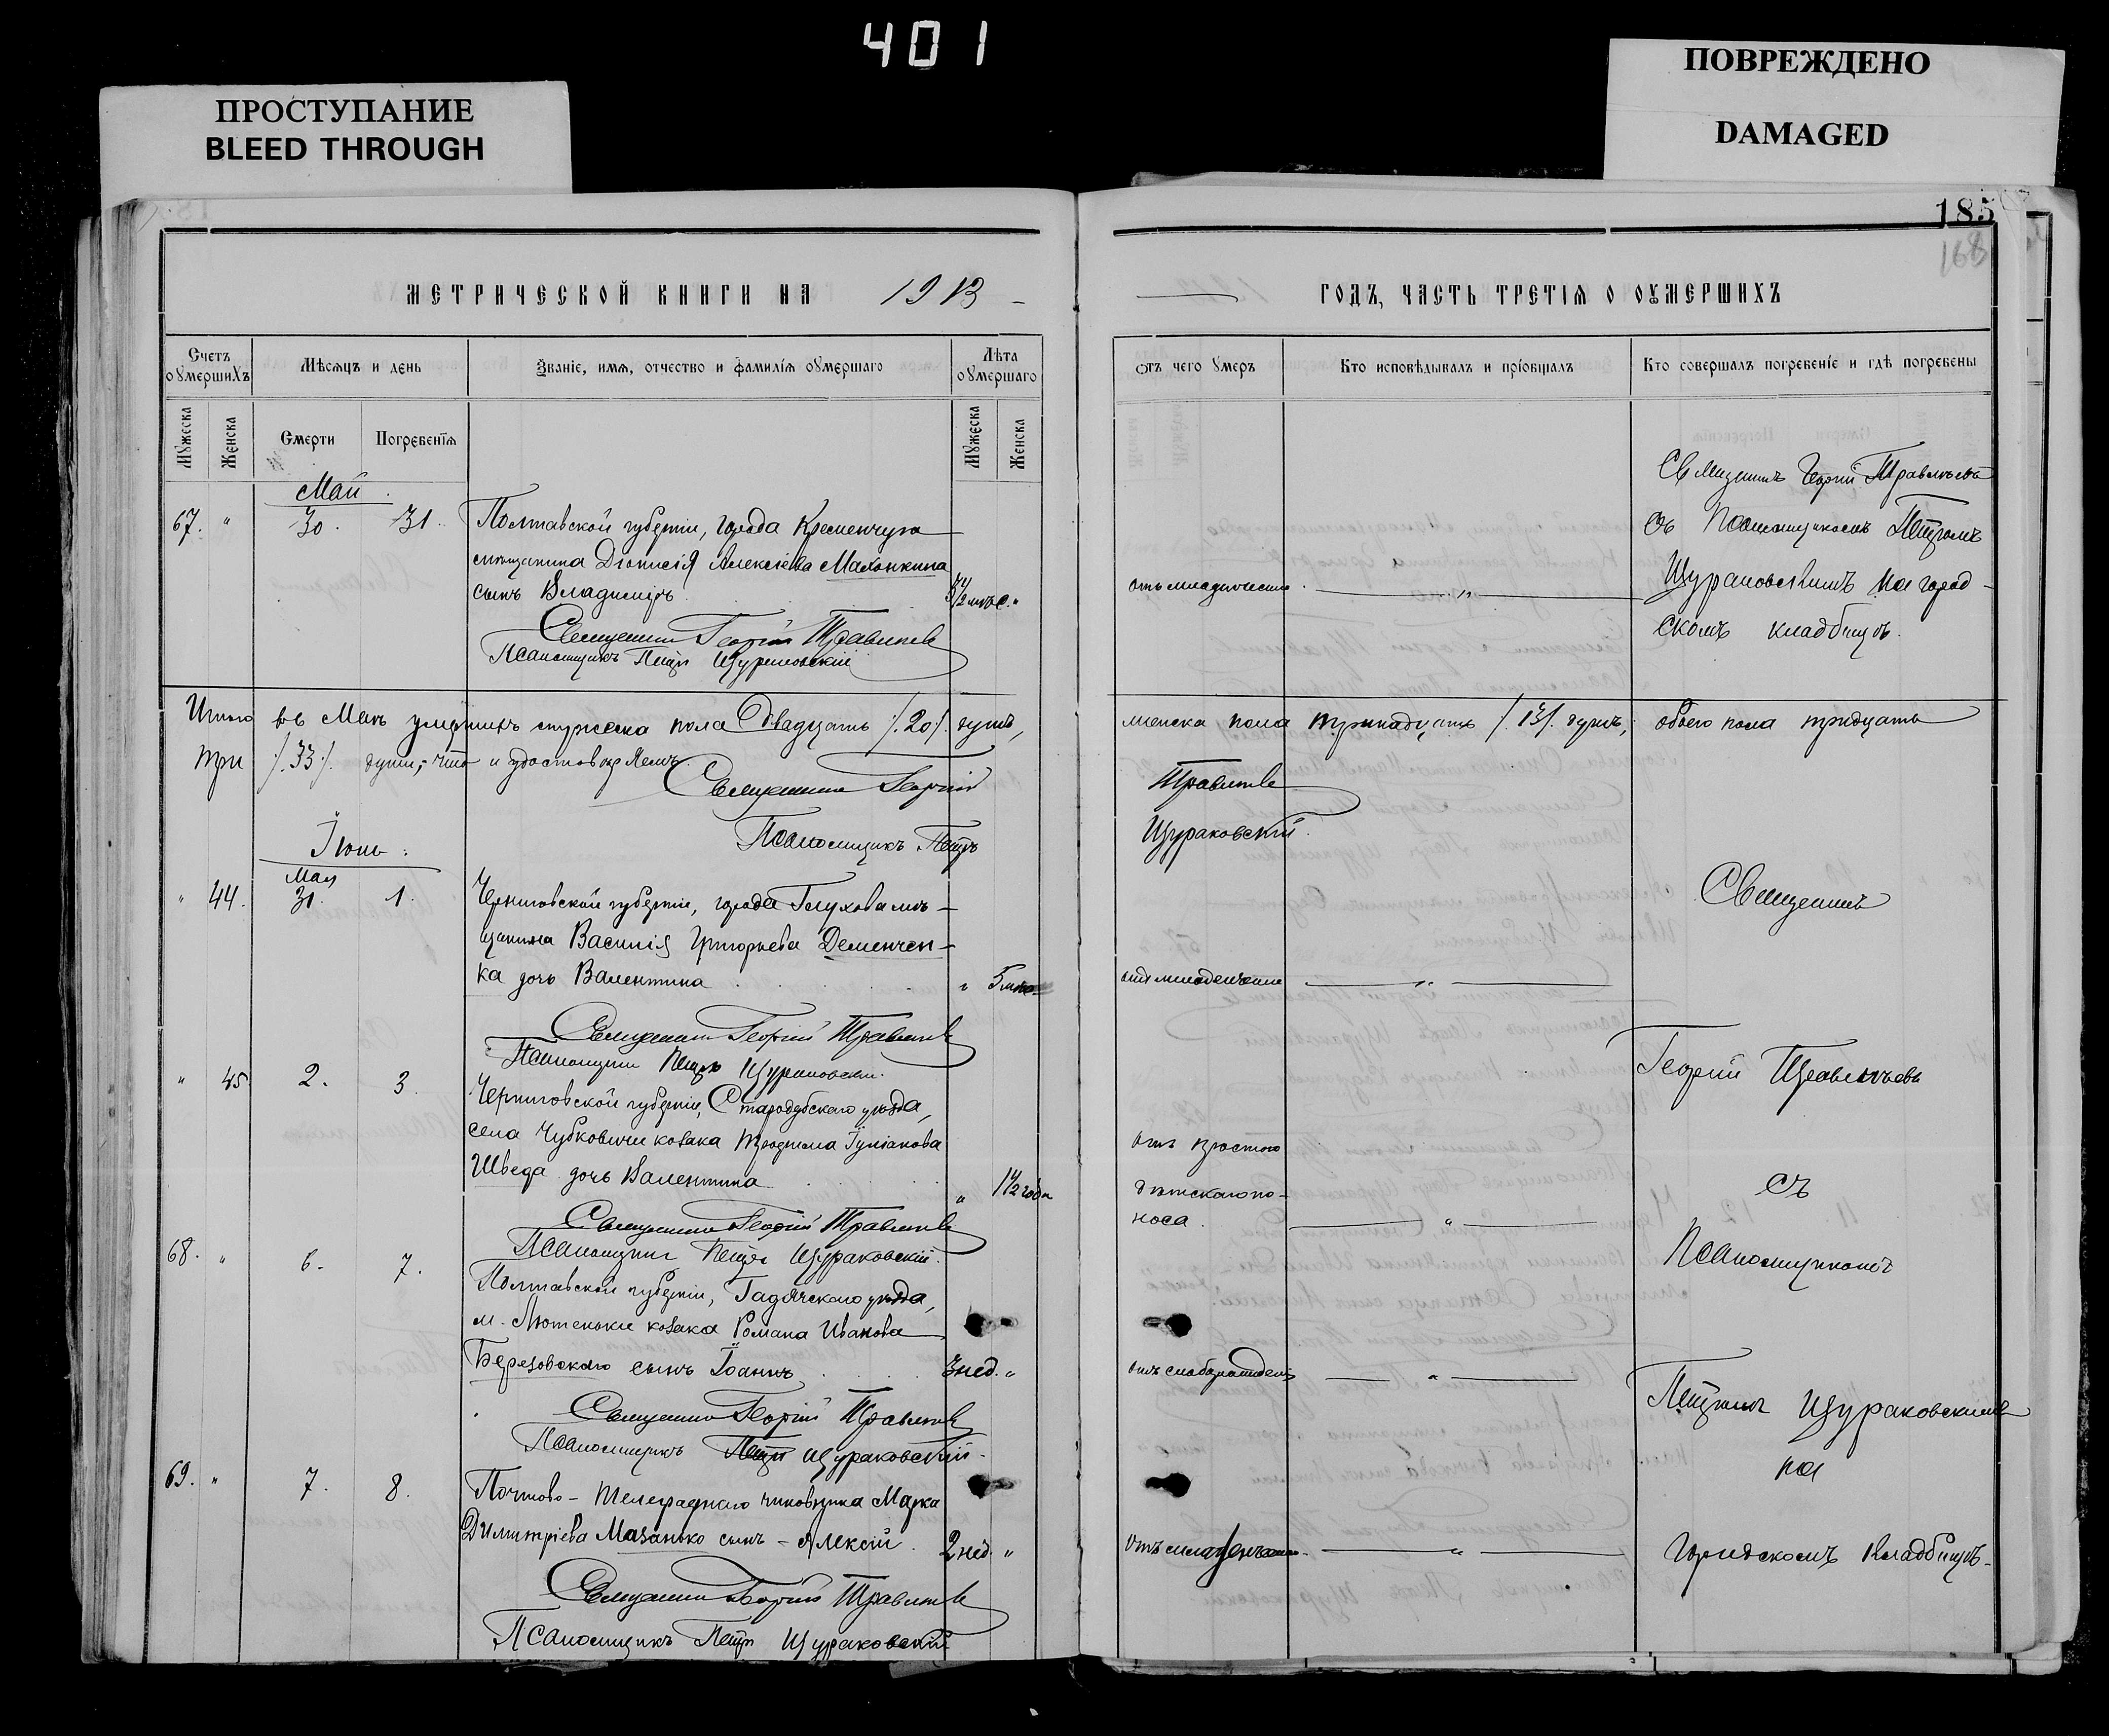 401
ПРОСТУПАНИЕ
BLEED THROUGH
ПОВРЕЖДЕНО
DAMAGED
185
168
МЕТРИЧЕСКОЙ КНИГИ НА 1913
ГОДЪ, ЧАСТЬ ТРЕТІЯ О ОУМЕРШИХЪ
Счетъ оумершихъ
Мѣсяцъ и день
Званіе, имя, отчество и фамилія оумершаго
Лѣта оумершаго
Отъ чего умеръ
Кто исповѣдывалъ и пріобщалъ
Кто совершалъ погребеніе и гдѣ погребены
Мужеска
Женска
Смерти
Погребенія
Мужеска
Женска
Май
67. " 30. 31. Полтавской губерніи, города Кременчуга
мѣщанина Діонисія Алексіева Махонкина
сынъ Владиміръ 3 1/2 мѣс. "
отъ младенческ.
Священникъ Георгій Травлѣевъ
съ Псаломщикомъ Петромъ
Щураковскимъ на город-
скомъ кладбищѣ.
Священникъ Георгій Травлѣевъ
Псаломщикъ Петръ Щураковскій
Итого въ Маѣ умершихъ мужеска пола двадцать /.20/. душъ, женска пола тринадцать /.13/. душъ, обоего пола тридцать
три /.33/. души, что и удостовѣряемъ.
Священникъ Георгій Травлѣевъ
Псаломщикъ Петръ Щураковскій.
Іюнь.
Мая
" 44. 31. 1. Черниговской губерніи, города Глухова мѣ-
щанина Василія Григорьева Деменчен-
ка дочь Валентина " 5 мѣс.
отъ младенческ.
Священникъ Георгій Травлѣевъ
Псаломщикъ Петръ Щураковскій.
" 45 2. 3. Черниговской губерніи, Стародубскаго уѣзда,
села Чубковичи козака
Шведа дочь Валентина " 1 1/2 года
отъ простого
дѣтскаго по-
носа.
Священникъ Георгій Травлѣевъ
Псаломщикъ Петръ Щураковскій.
68. " 6. 7. Полтавской губерніи, Гадячскаго уѣзда,
м. Лютеньки козака Романа Иванова
Березовскаго сынъ Іоаннъ 3 нед. "
отъ слаборожден.
Священникъ Георгій Травлѣевъ
Псаломщикъ Петръ Щураковскій.
69. " 7. 8. Почтово-телеграфнаго чиновника Марка
Димитріева Мазанько сынъ - Алексій. 2 нед. "
отъ младенческ.
Священникъ Георгій Травлѣевъ
Псаломщикъ Петръ Щураковскій
Священникъ
Георгій Травлѣевъ
съ
Псаломщикомъ
Петромъ Щураковскимъ
на
городскомъ кладбищѣ.